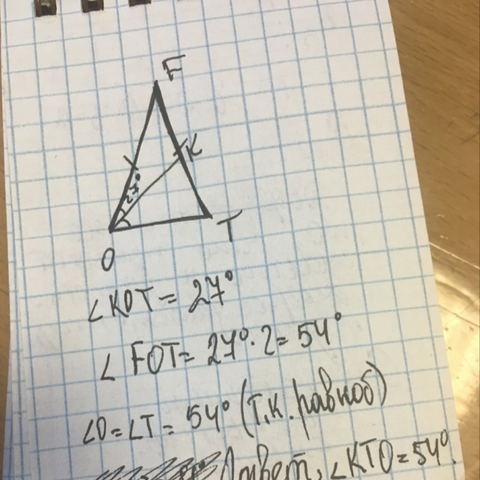 F
K
27°
O
T
∠KOT = 27°
∠ FOT = 27° · 2 = 54°
∠O = ∠T = 54° (Т.К. равноб)
Ответ, ∠KTO = 54°.